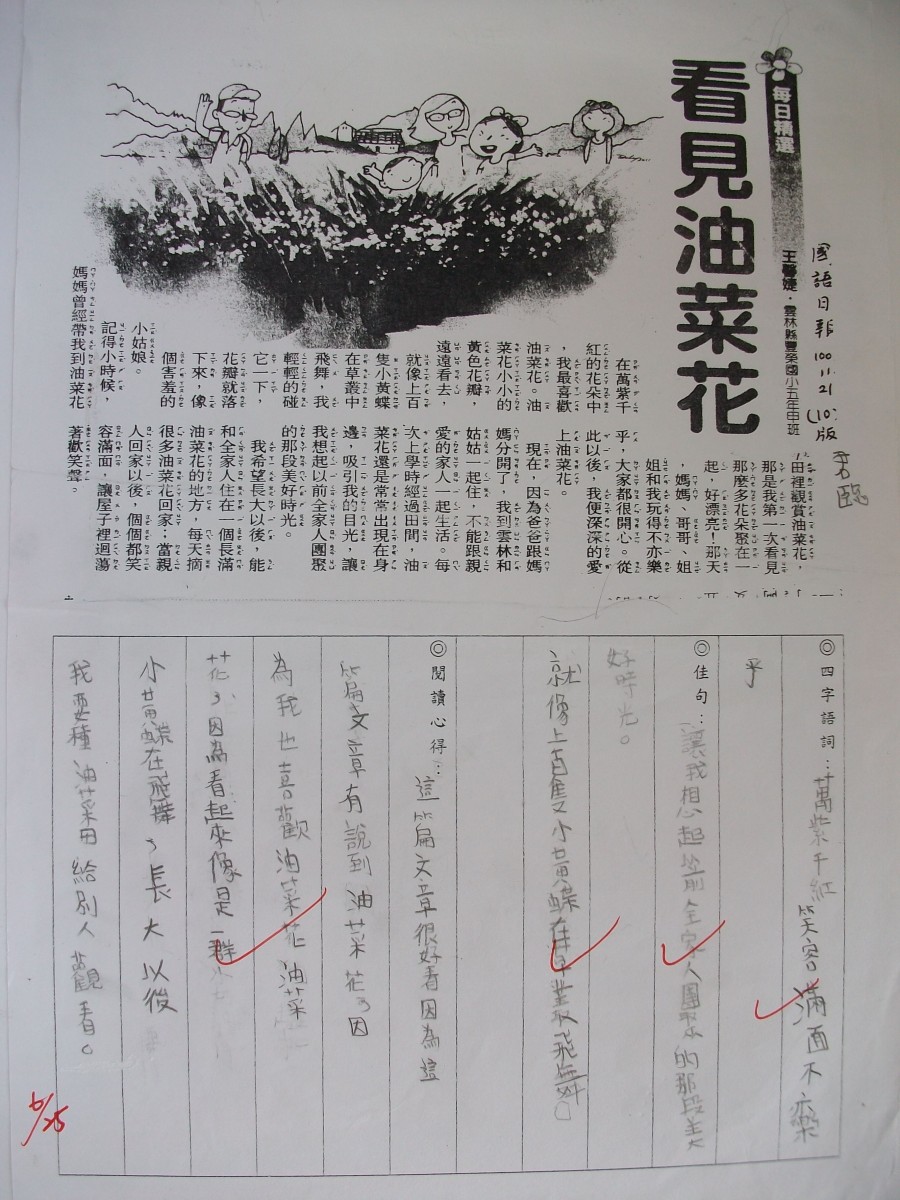 每日精選
看見油菜花
王馨婕・雲林縣豐榮國小五年甲班
國語日報100.11.21(10)版
在萬紫千
紅的花朵中
，我最喜歡
油菜花。油
菜花小小的
黃色花瓣，
遠遠看去，
就像上百
隻小黃蝶
在草叢中
飛舞，我
輕輕的碰
它一下，
花瓣就落
下來，像
個害羞的
小姑娘。
記得小時候，
媽媽曾經帶我到油菜花
田裡觀賞油菜花，
那是我第一次看見
那麼多花朵聚在一
起，好漂亮！那天
，媽媽、哥哥、姐
姐和我玩得不亦樂
乎，大家都很開心。從
此以後，我便深深的愛
上油菜花。
現在，因為爸爸跟媽
媽分開了，我到雲林和
姑姑一起住，不能跟親
愛的家人一起生活。每
次上學時經過田間，油
菜花還是常常出現在身
邊，吸引我的目光，讓
我想起以前全家人團聚
的那段美好時光。
我希望長大以後，能
和全家人住在一個長滿
油菜花的地方，每天摘
很多油菜花回家；當親
人回家以後，個個都笑
容滿面，讓屋子裡迴蕩
著歡笑聲。
◎四字語詞：萬紫千紅 笑容滿面不亦樂
乎
◎佳句：讓我想起前全家人團聚的那段美
好時光。
就像上百隻小黃蝶在草叢飛舞。
◎閱讀心得：這篇文章很好看因為這
篇文章有說到油菜花，因
為我也喜歡油菜花油菜
花，因為看起來像是一群
小黃蝶在飛舞，長大以後
我要種油菜田給別人觀看。
6/25